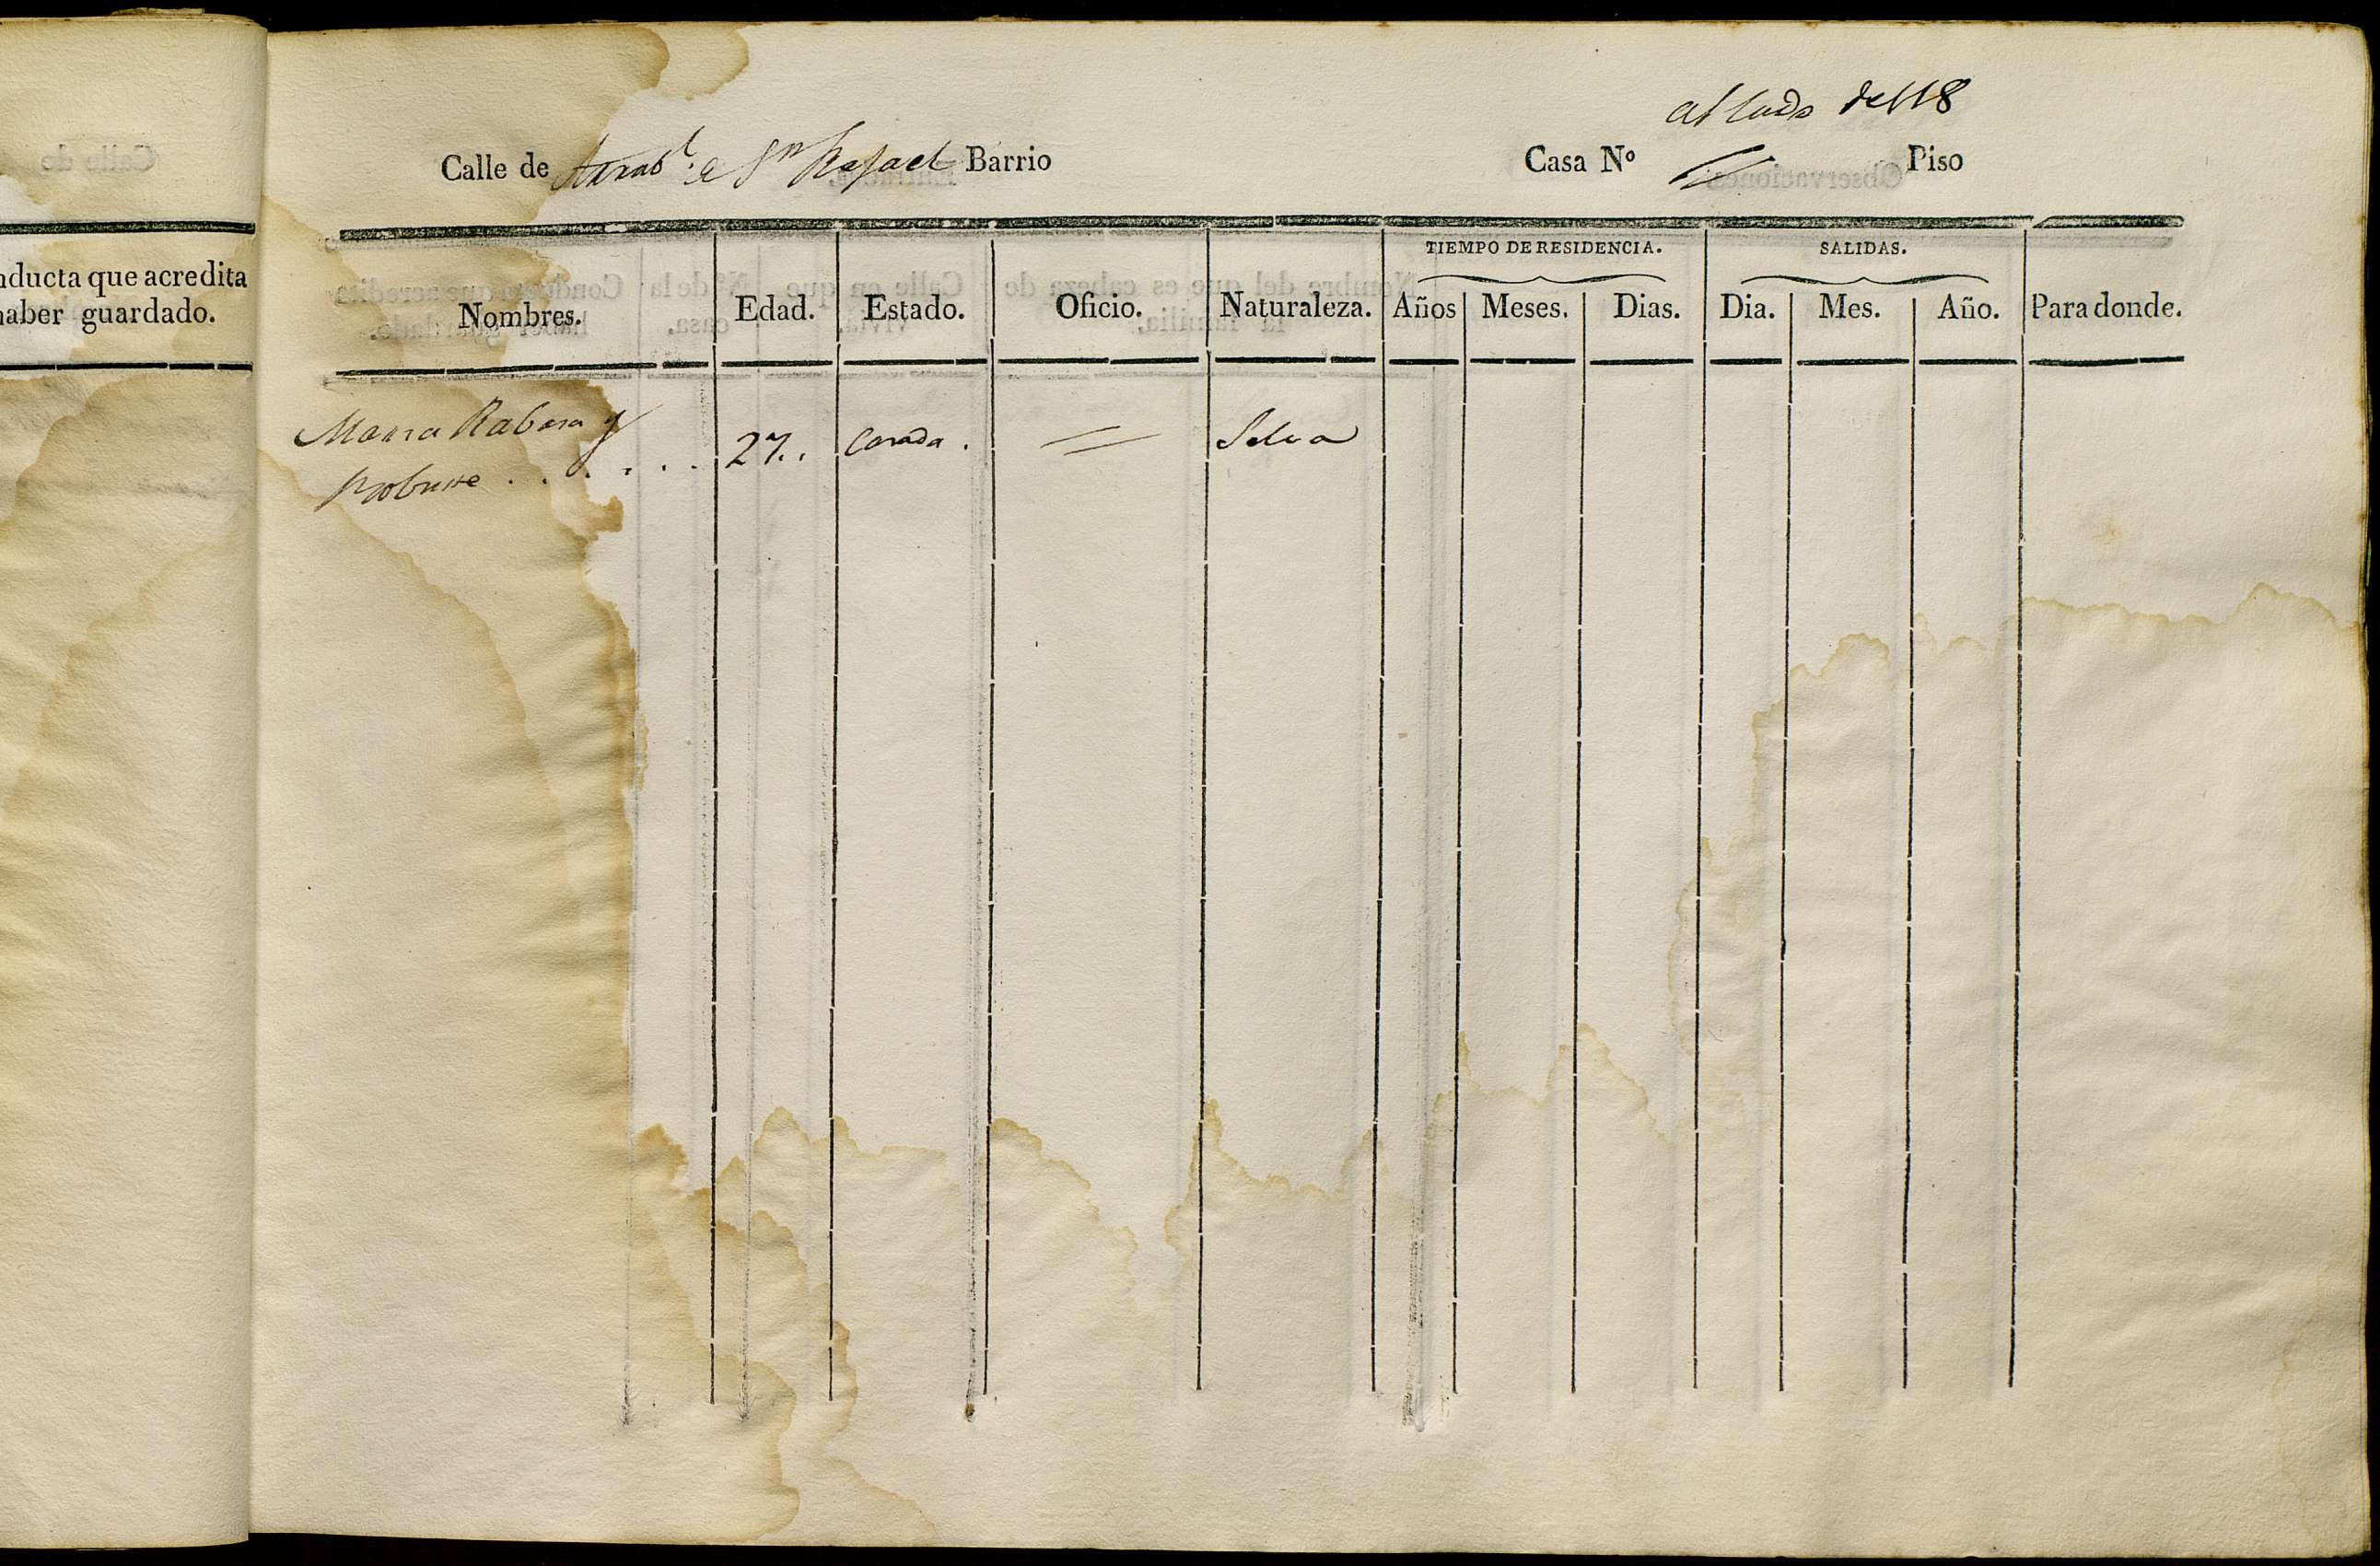 al lado del 18
Calle de Arrab.l de Sn Rafael Barrio Casa Nº Piso
nducta que acredita
haber guardado.
TIEMPO DE RESIDENCIA. SALIDAS.
Nombres. Edad. Estado. Oficio. Naturaleza. Años Meses. Dias. Dia. Mes. Año. Para donde.
Maria Rabasa y
27.. Casada . = Selva